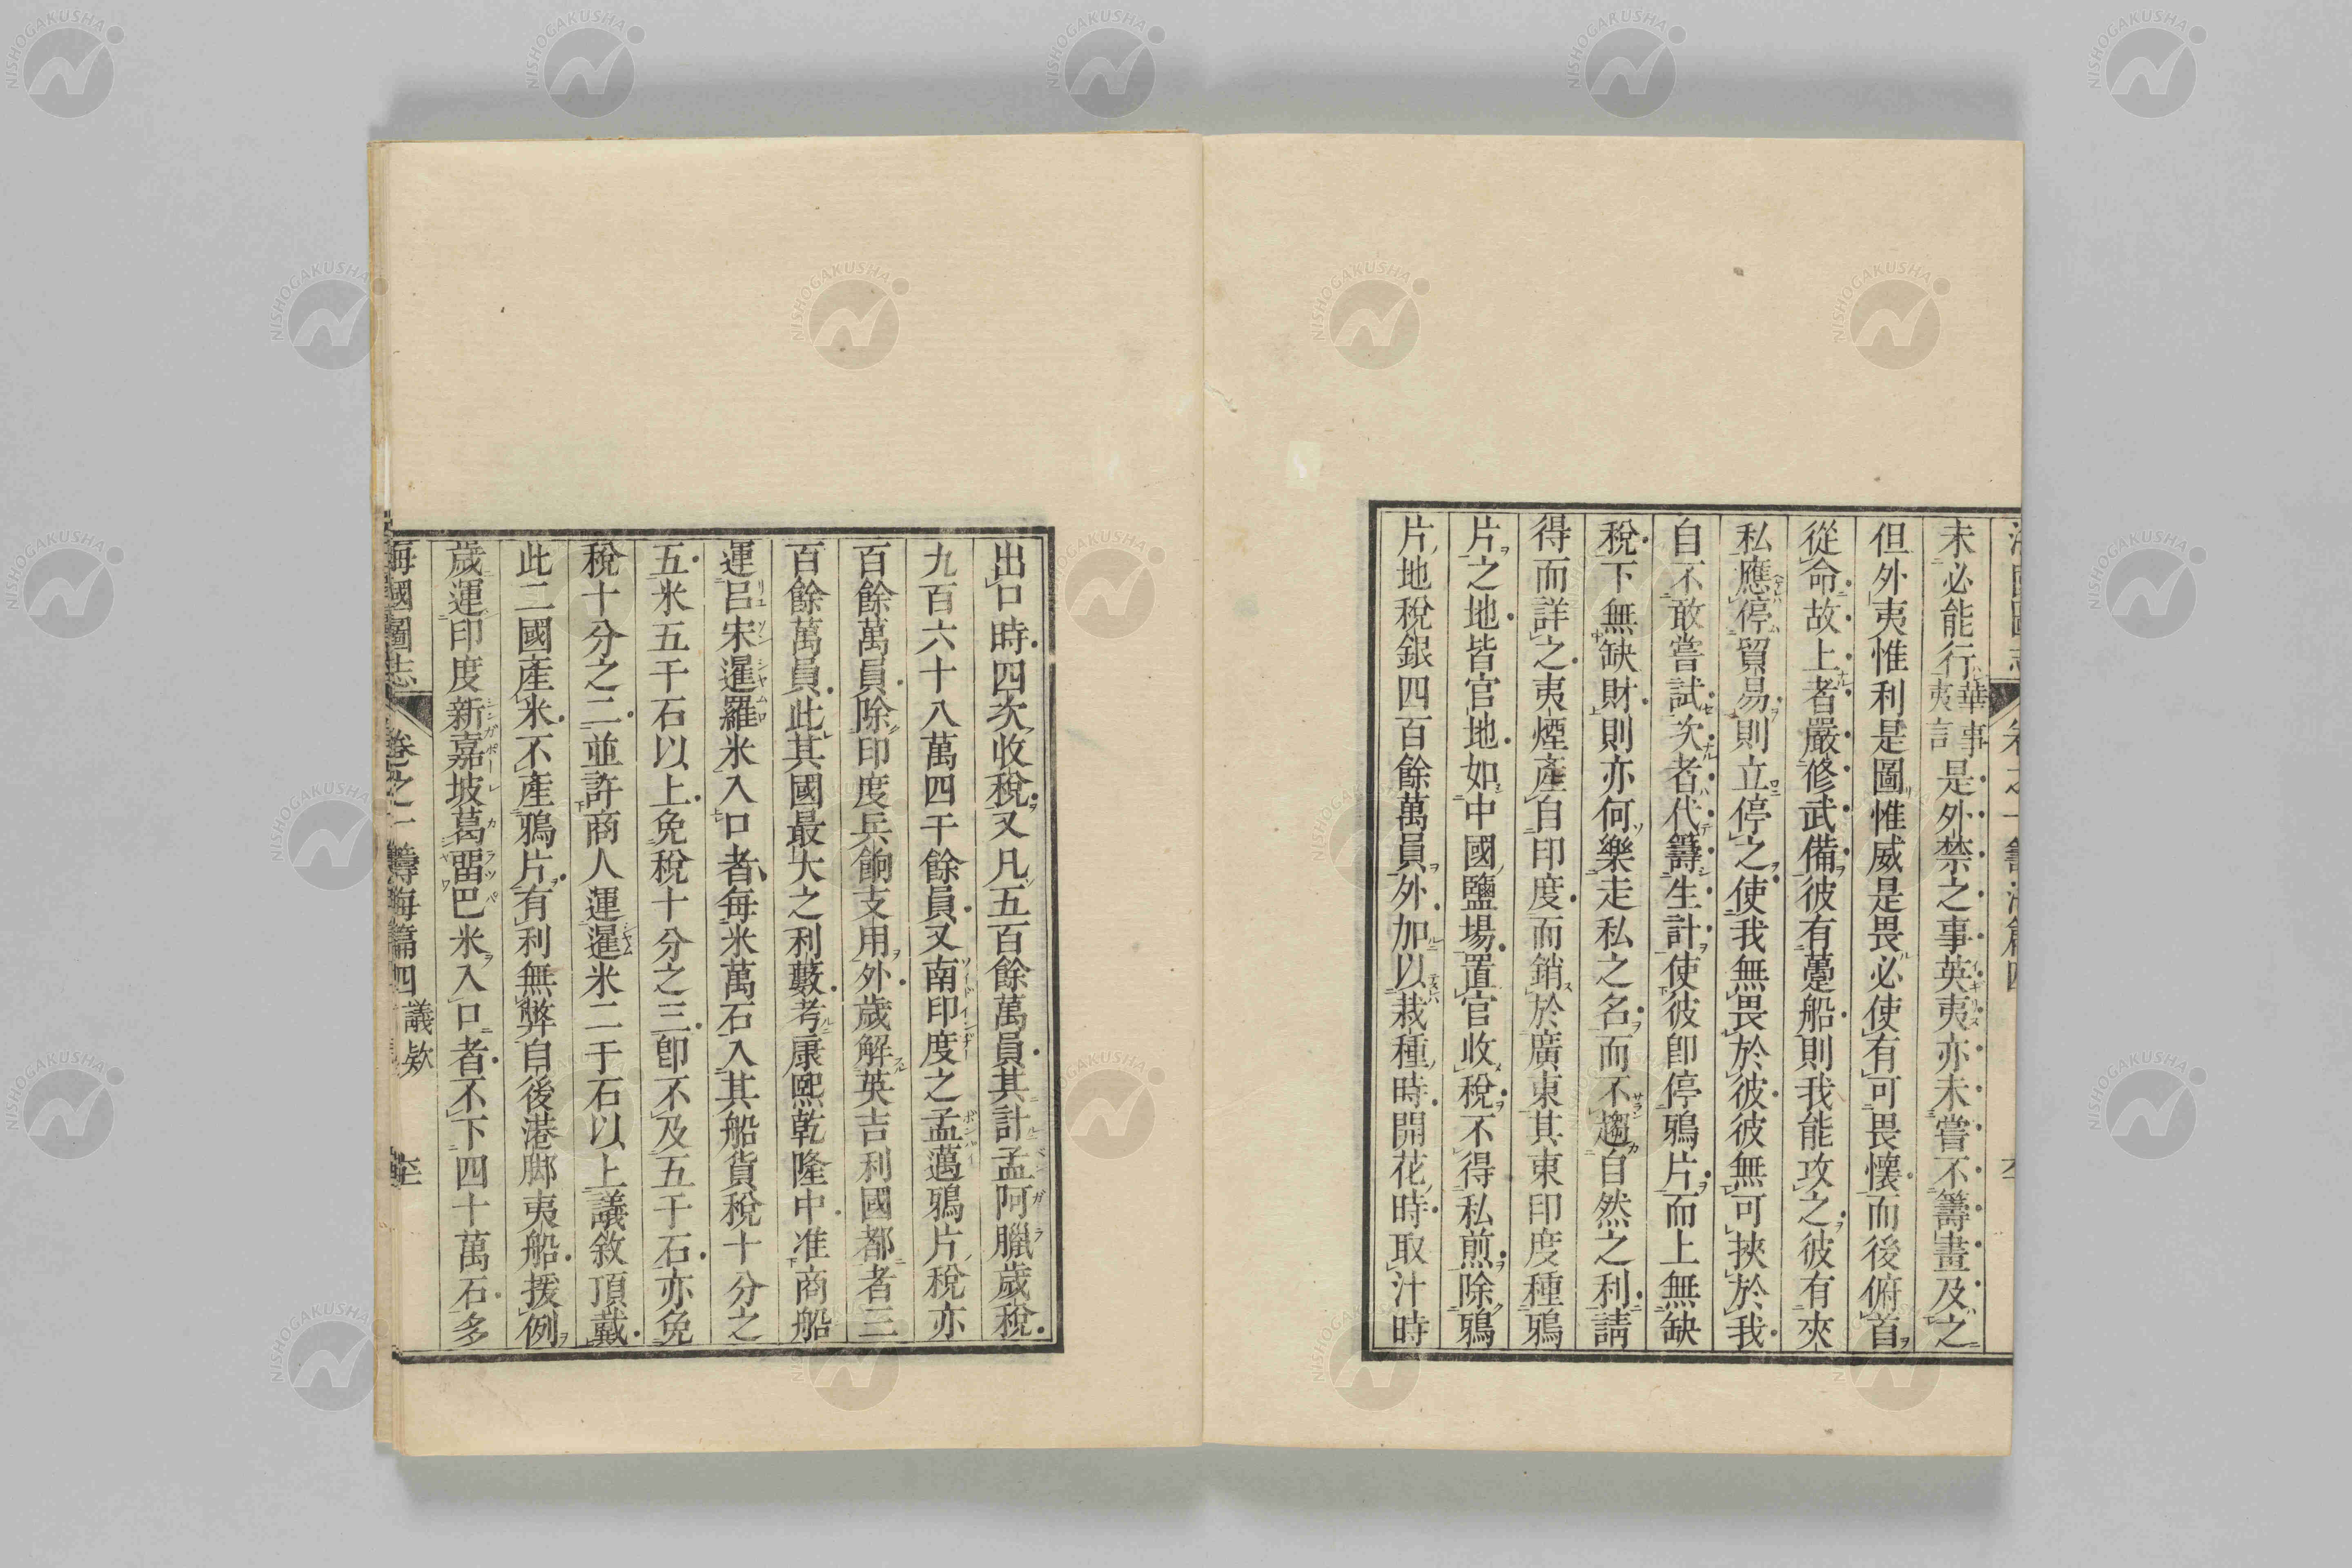 未必能行華事夷言是外禁之事英夷亦未嘗不籌畫及之
但外夷惟利是圖惟威是畏必使有可畏懷而後俯首
從命故上者嚴修武備彼有躉船則我能攻之彼有夾
私應停貿易則立停之使我無畏於彼彼無可挾於我
自不敢嘗試次者代籌生計使彼卽停鴉片而上無缺
稅下無缺財則亦何樂走私之名而不趨自然之利請
得而詳之夷煙產自印度而銷於廣東其東印度種鴉
片之地皆官地如中國鹽場置官收稅不得私煎除鴉
片地稅銀四百餘萬員外加以栽種時開花時取汁時
出口時四次收稅又凡五百餘萬員其計孟阿臘歲稅
九百六十八萬四千餘員又南印度之孟邁鴉片稅亦
百餘萬員除印度兵餉支用外歲解英吉利國都者三
百餘萬員此其國最大之利藪考康熙乾隆中准商船
運呂宋暹羅米入口者每米萬石入其船貨稅十分之
五米五千石以上免稅十分之三卽不及五千石亦免
稅十分之二並許商人運暹米二千石以上議敘頂戴
此二國產米不產鴉片有利無弊自後港脚夷船援例
歲運印度新嘉坡葛留巴米入口者不下四十萬石多
海國圖志 卷之一 籌海篇四 議欵
NISHOGAKUSHA